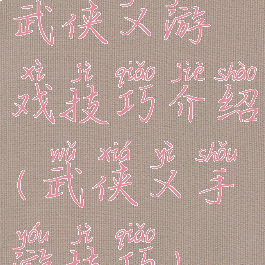 武侠乂游
xì jì qiǎo jiè shào
戏技巧介绍
wǔ xiá yì shǒu
(武侠乂手
yóu jì qiǎo
游技巧)